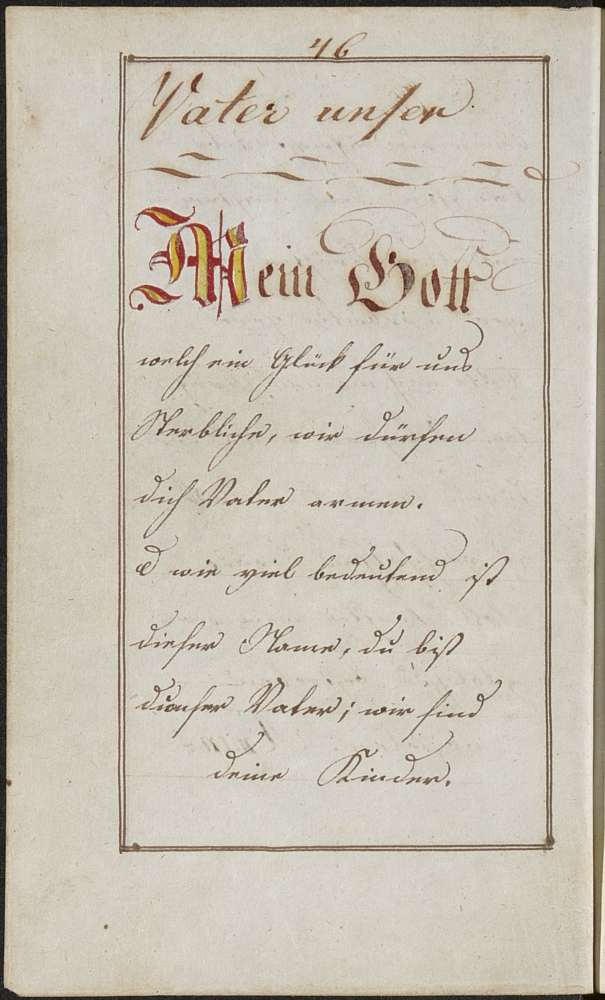 46
Vater unser
Mein Gott
welch ein Glück für uns
Sterbliche, wir dürfen
dich Vater
O wie viel bedeutend ist
dieser Name, du bist
Vater; wir sind
deine Kinder.